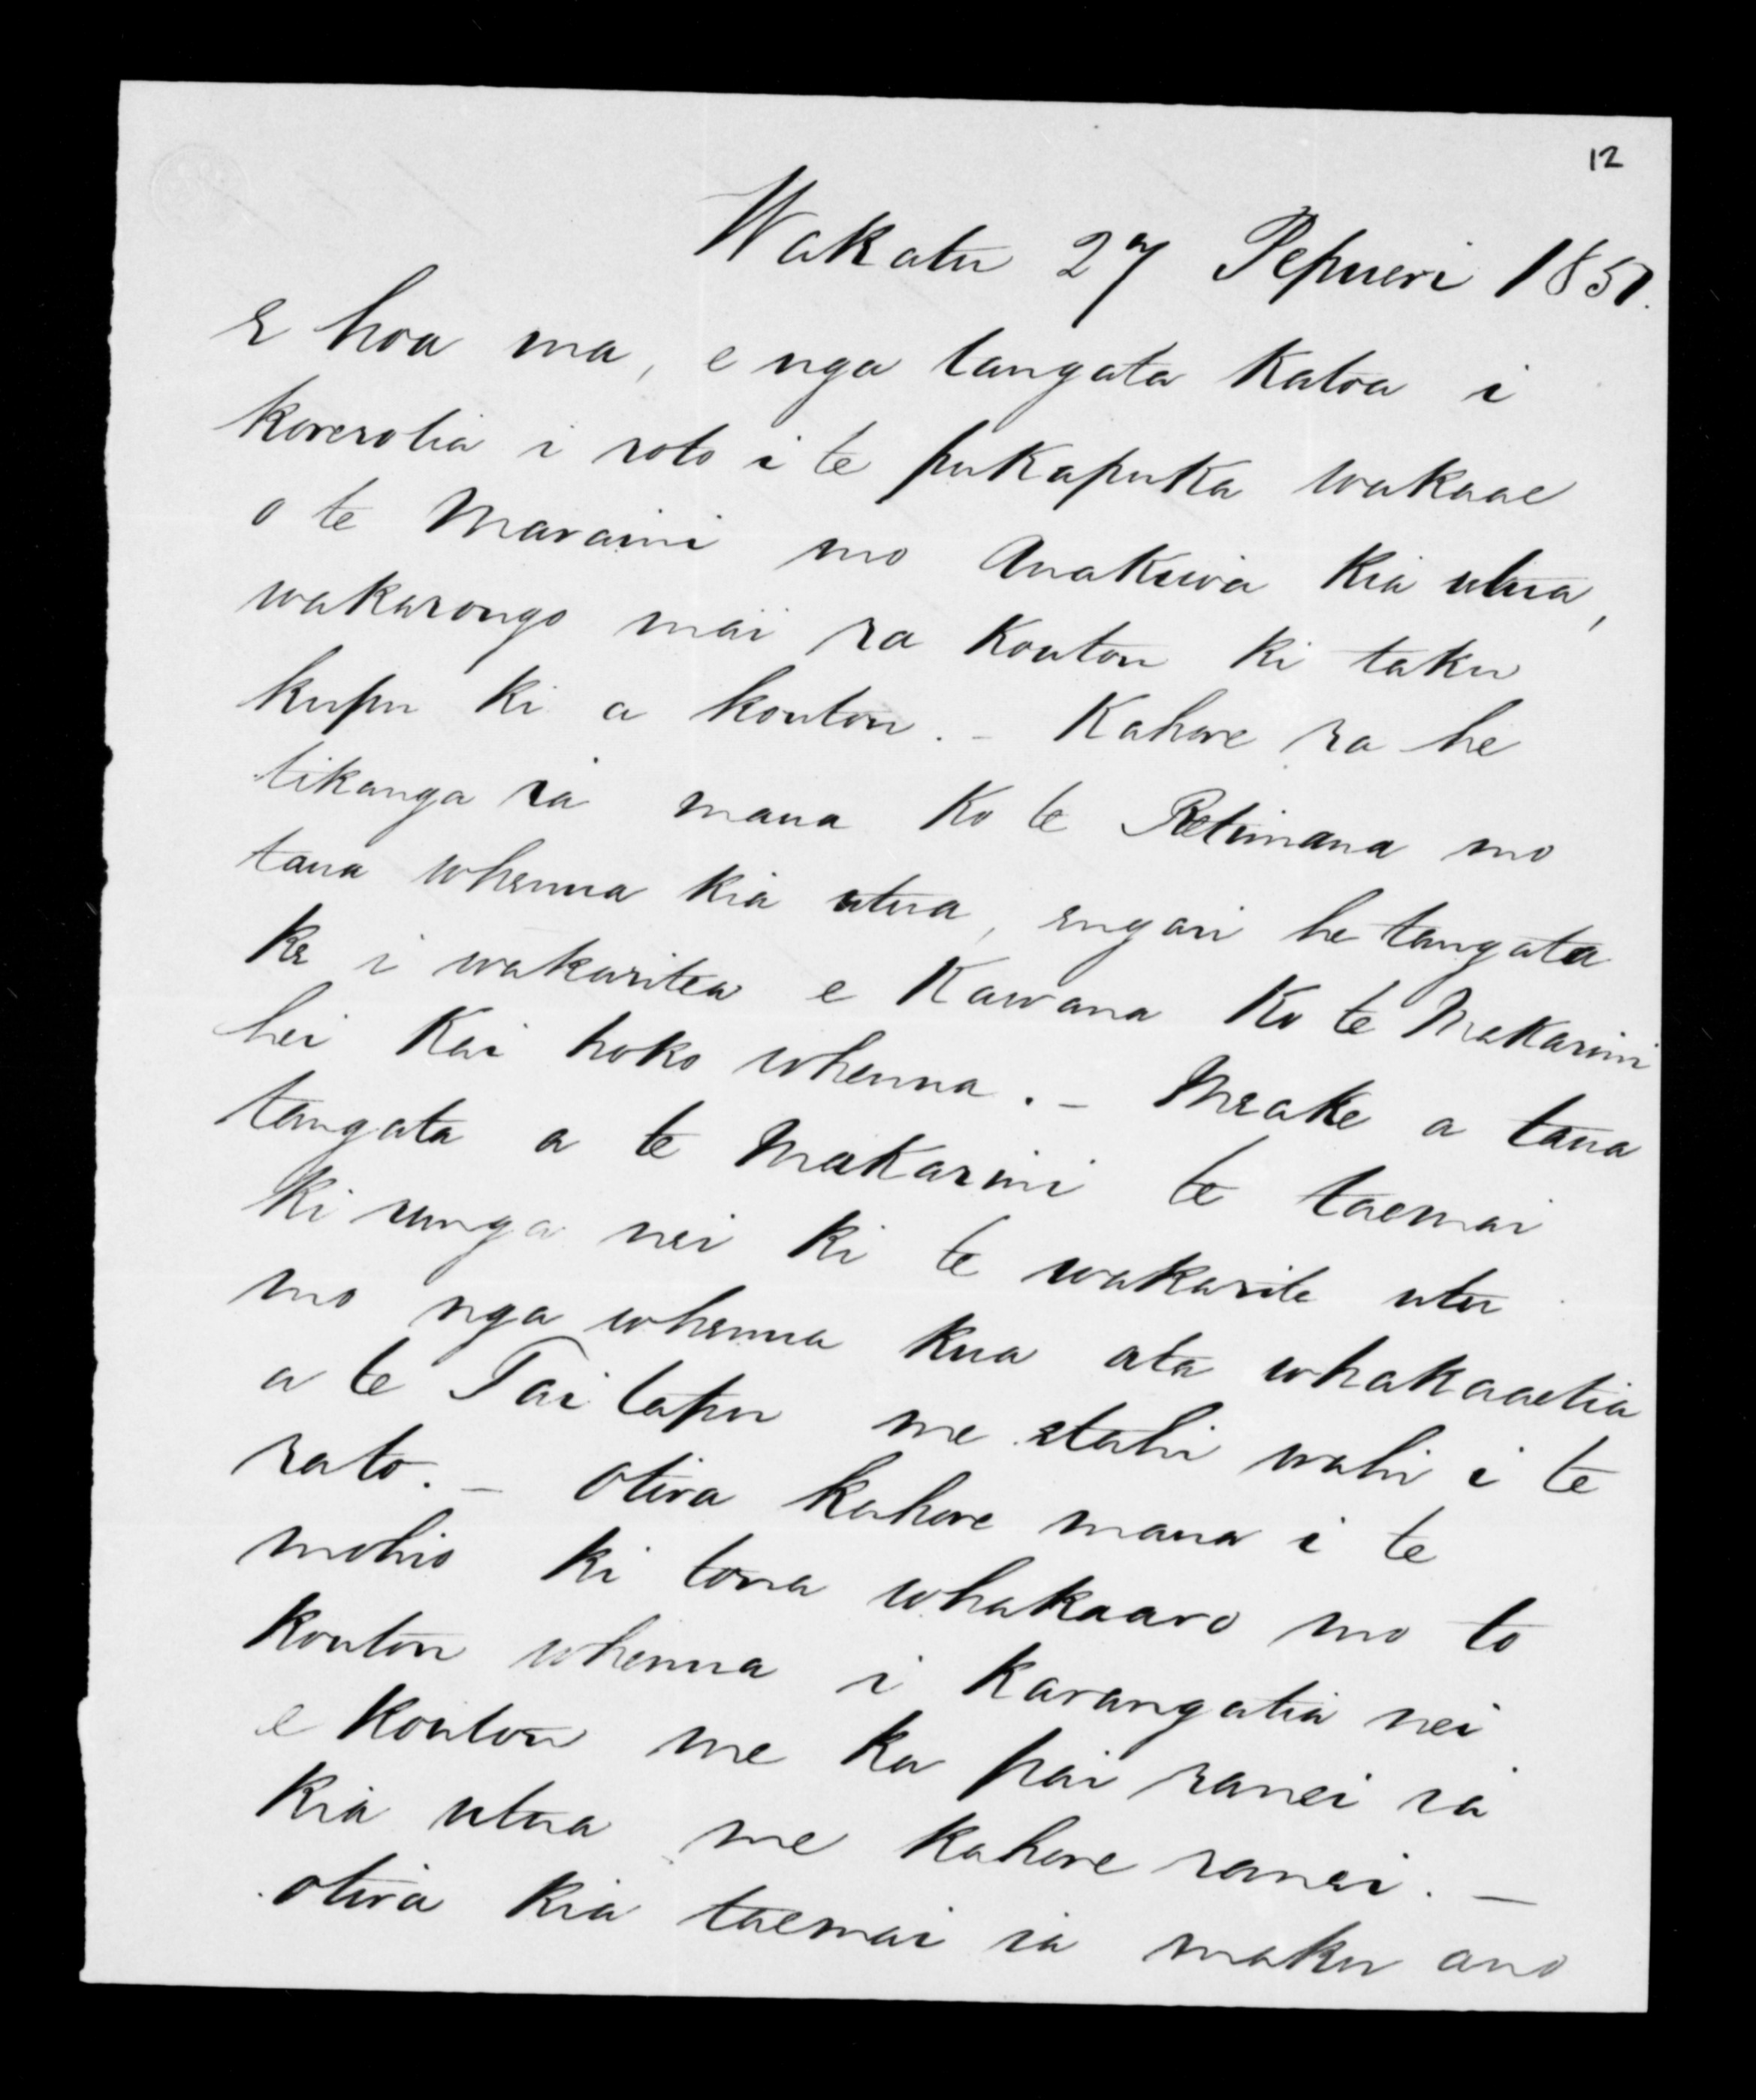 12
Wakatu 27 Pepueri 1851.
E hoa ma, e nga tangata katoa i
korerotia i roto i te pukapuka wakaae
o te Maraini mo Anakiwa kia utua,
wakarongo mai ra koutou ki taku
kupu ki a koutou. - Kahore ra he
tikanga ia maua ko te Retimana mo
taua whenua kia utua, engari he tangata
ke i wakaritea e Kawana ko te Makarini
hei kai hoko whenua. - Meake a taua
tangata a te Makarini te taemai
ki runga nei ki te wakarite utu
mo nga whenua kua ata whakaaetia
a te Tai tapu me etahi wahi i te
rato. - Otira kahore maua i te
mohio ki tona whakaaro mo to
koutou whenua i karangatia nei
e koutou me ka pai ranei ia
kia utua me kahore ranei. -
otira kia taemai ia maku ano